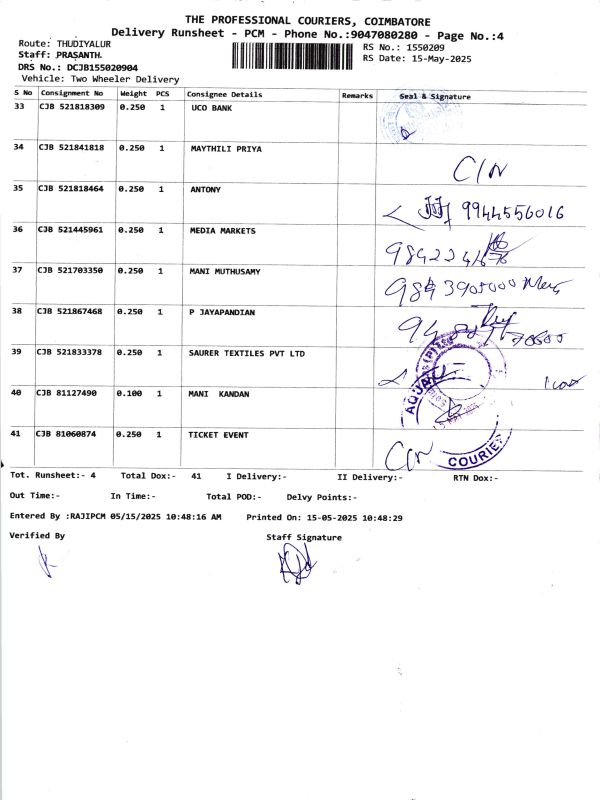 THE PROFESSIONAL COURIERS, COIMBATORE
Delivery Runsheet - PCM - Phone No.:9047080280 - Page No.:4
Route: THUDIYALUR
RS No.: 1550209
Staff: PRASANTH.
RS Date: 15-May-2025
DRS No.: DCJB155020904
Vehicle: Two Wheeler Delivery
S No Consignment No Weight PCS Consignee Details Remarks Seal & Signature
33 CJB 521818309 0.250 1 UCO BANK
34 CJB 521841818 0.250 1 MAYTHILI PRIYA
C/N
35 CJB 521818464 0.250 1 ANTONY
9944556016
36 CJB 521445961 0.250 1 MEDIA MARKETS
37 CJB 521703350 0.250 1 MANI MUTHUSAMY
38 CJB 521867468 0.250 1 P JAYAPANDIAN
39 CJB 521833378 0.250 1 SAURER TEXTILES PVT LTD
40 CJB 81127490 0.100 1 MANI KANDAN
41 CJB 81060874 0.250 1 TICKET EVENT
C/N
COURIER
Tot. Runsheet:- 4 Total Dox:- 41 I Delivery:- II Delivery:- RTN Dox:-
Out Time:- In Time:- Total POD:- Delvy Points:-
Entered By :RAJIPCM 05/15/2025 10:48:16 AM Printed On: 15-05-2025 10:48:29
Verified By Staff Signature